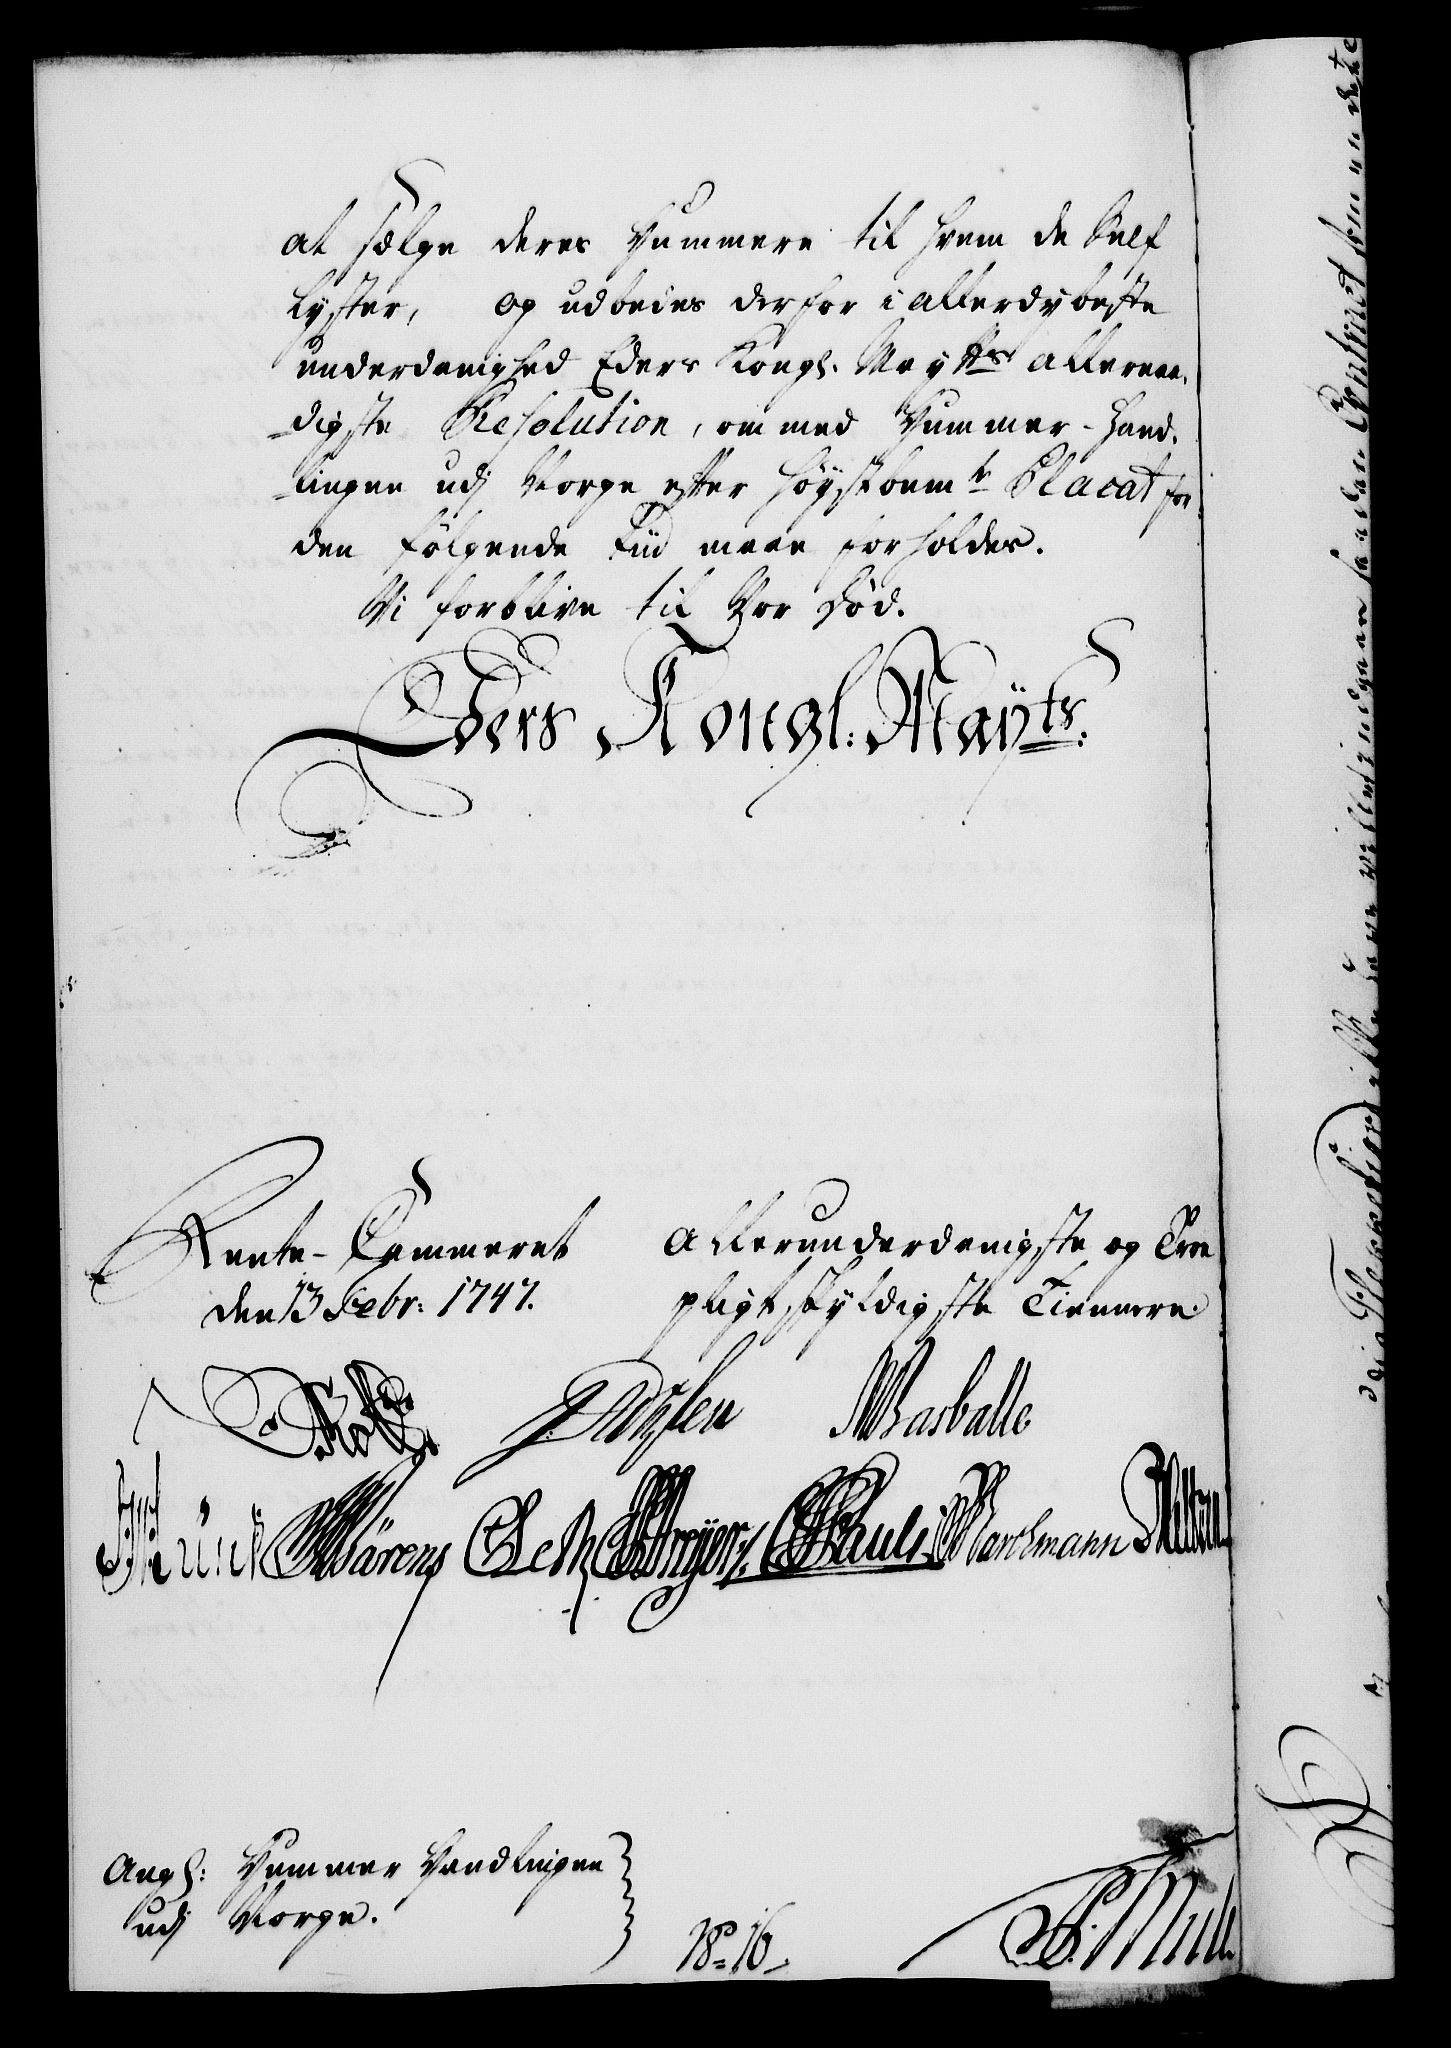 at sælge deres Hummere til hvem de Self
Lyster, og udbedes derfor i allerdybeste
underdanighed Eders Kongl. Mayts allernaa-
-digste Resolution, om med Hummer-Hand-
-lingen udj Norge efter höystbemte Placat for
den fölgende Tiid maae forholdes.
Vi forblive til Vor död.
Eders Kongl: Mayts:
Rente-Cammeret
den 13 Febr: 1747.
Allerunderdanigste og Troe
pligtskyldigste Tiennere
Wasballe
Pauli Barchmann
Angl: Hummer Handlingen
udj Norge.
No 16.